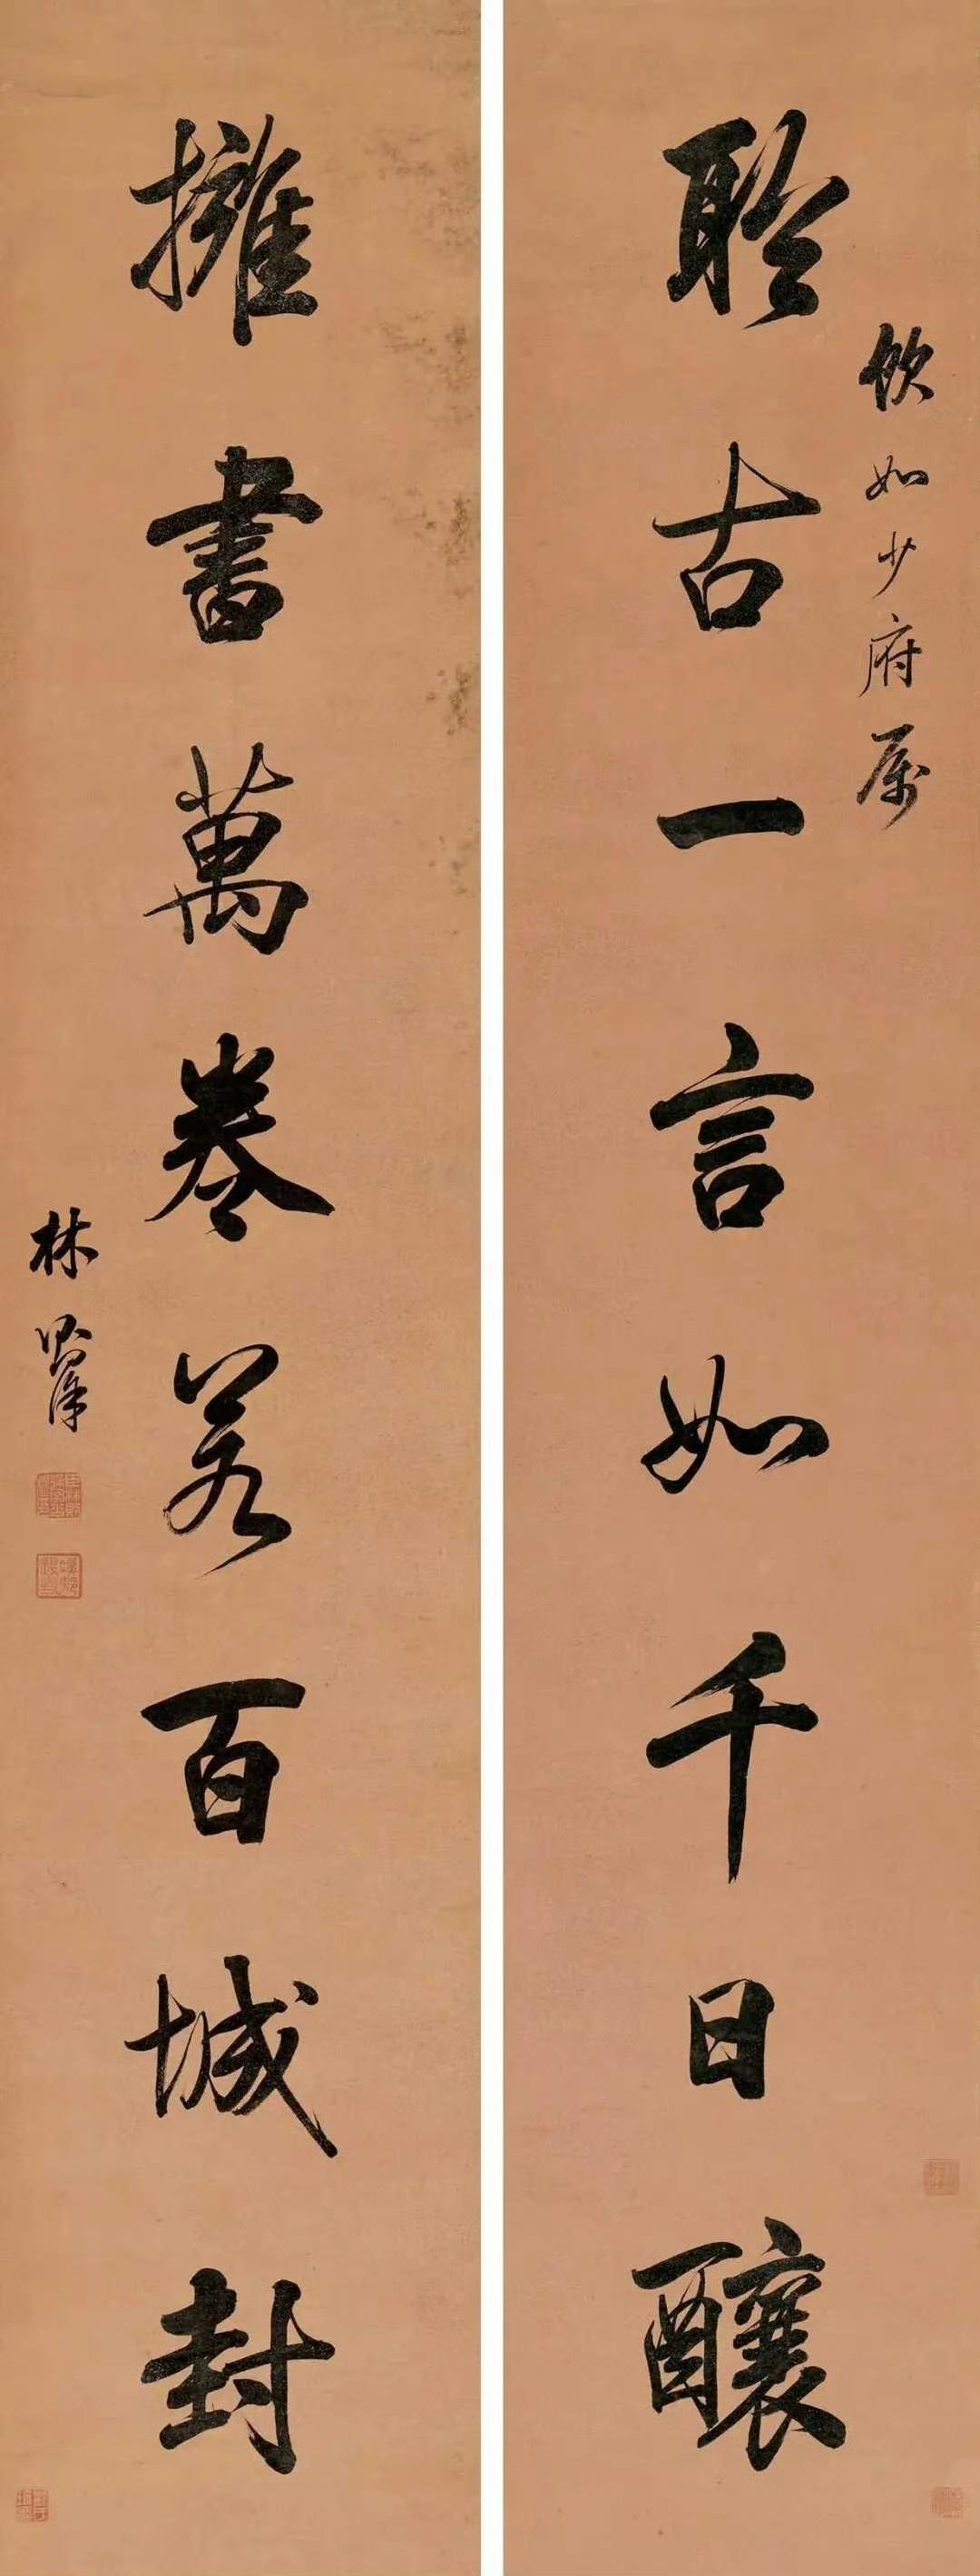 飲如少府屬
聆古一言如千日釀
擁書萬卷若百城封
林則徐